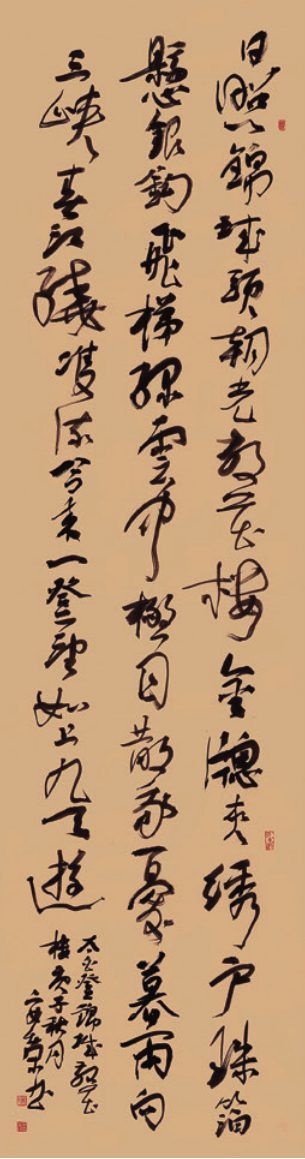 日照錦城頭朝光散花樓金牕夾绣户珠箔
懸銀鈎飛梯綠雲中極目散我憂暮雨向
三峽春江繞雙流今来一登望如上九天遊
太白登錦城散花
樓庚子秋月
书